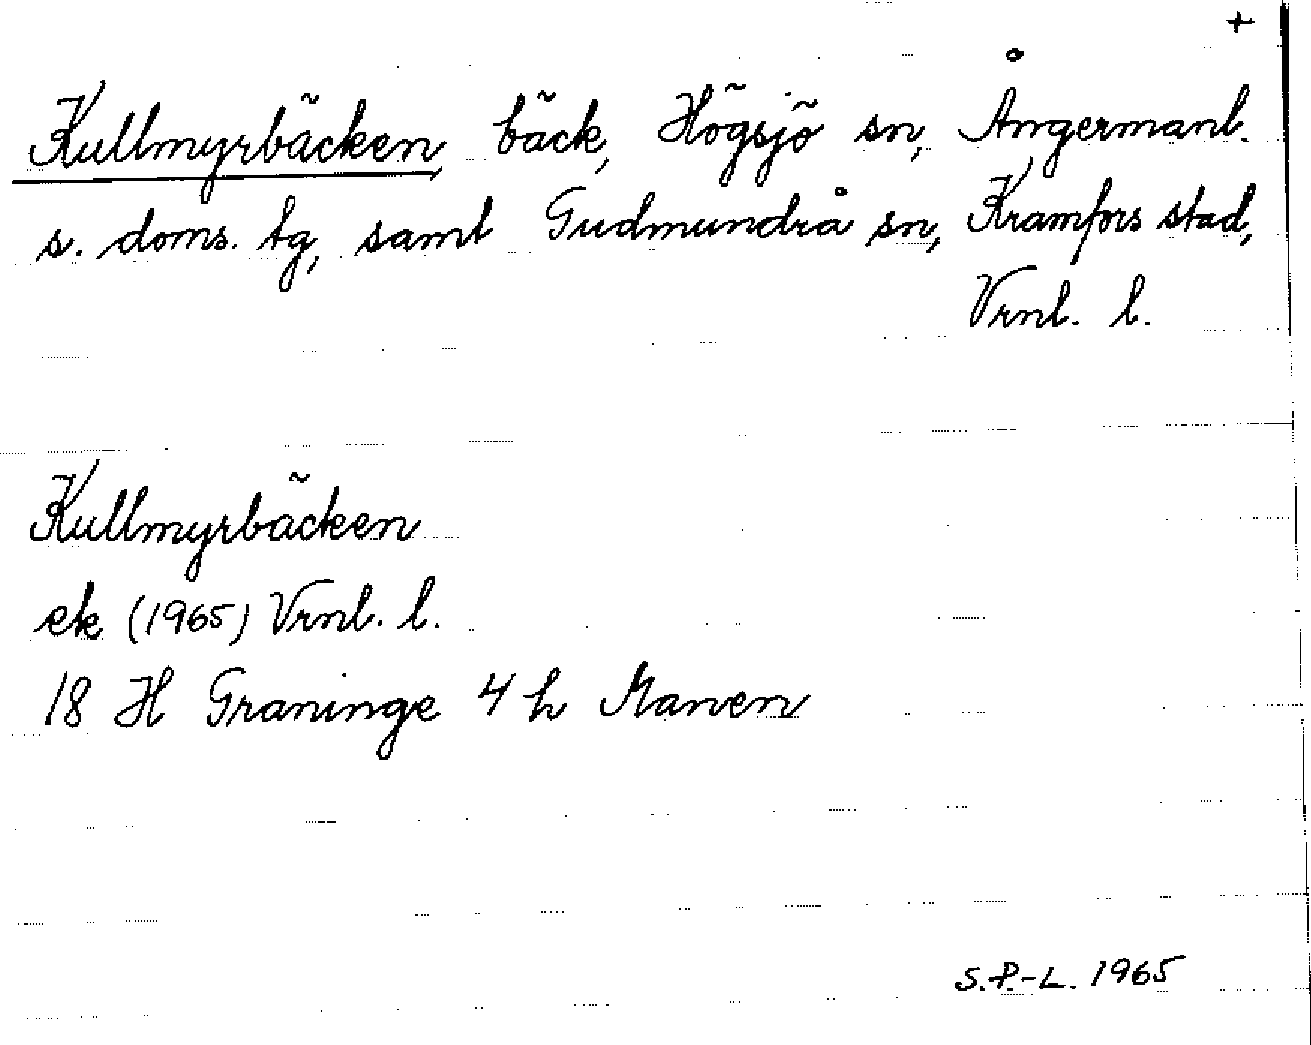 +
Kullmyrbäcken, bäck, Högsjö sn, Ångermanl.
s. doms. tg, samt Gudmundrå sn, Kramfors stad,
Vrnl. l.
Kullmyrbäcken
ek (1965) Vrnl. l.
18 H Graninge 4 h Manen
S.P.-L. 1965